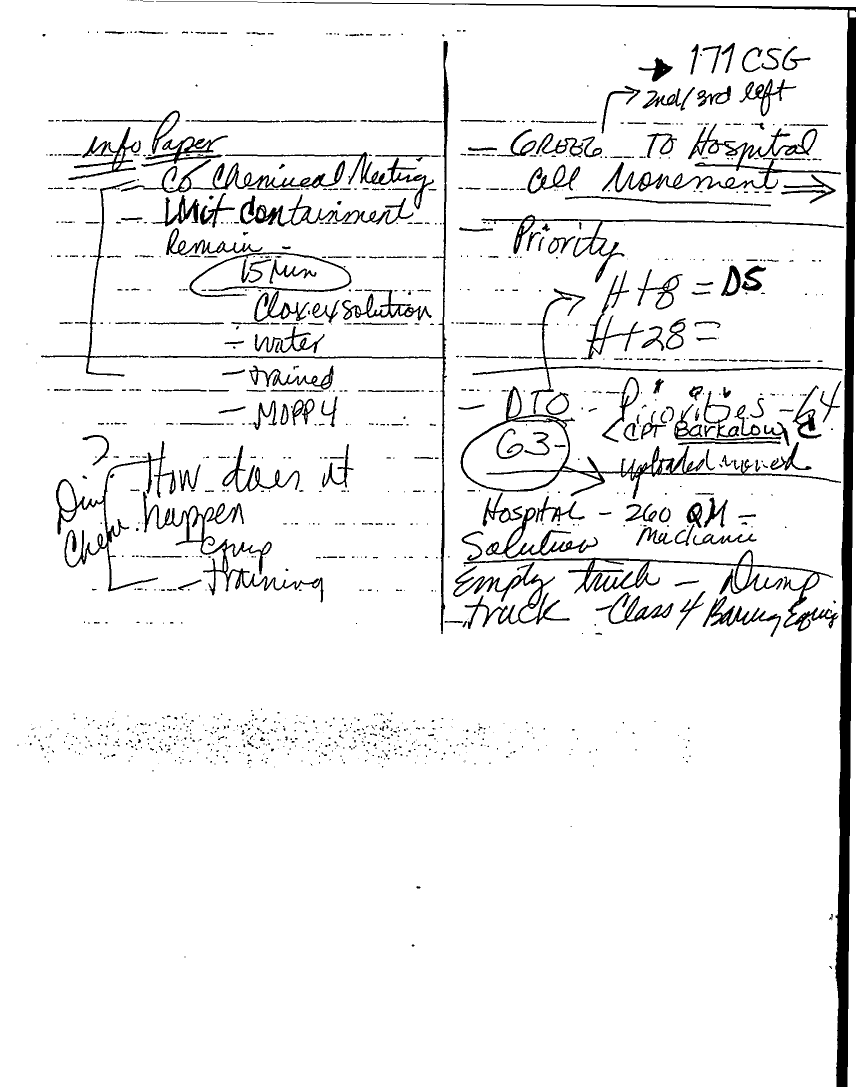 info Paper
- CO Chemiucal Meeting
- Unit Containment
Remain -
15 Min
- Clorex solution
- water
- trained
- MOPP 4
?
Div. Chem.
How does it
happen
- Equip
- training
→ 171 CSG
2nd/3rd left
- GREEG TO Hospitral
Cell Movement
- Priority
H+8 = DS
H+28 =
- DTO - Priorities - G4
G3
CPT Barkalow
uploaded moved
Hospital - 260 QM -
Solution
Empty truck - Dump
truck - Class 4